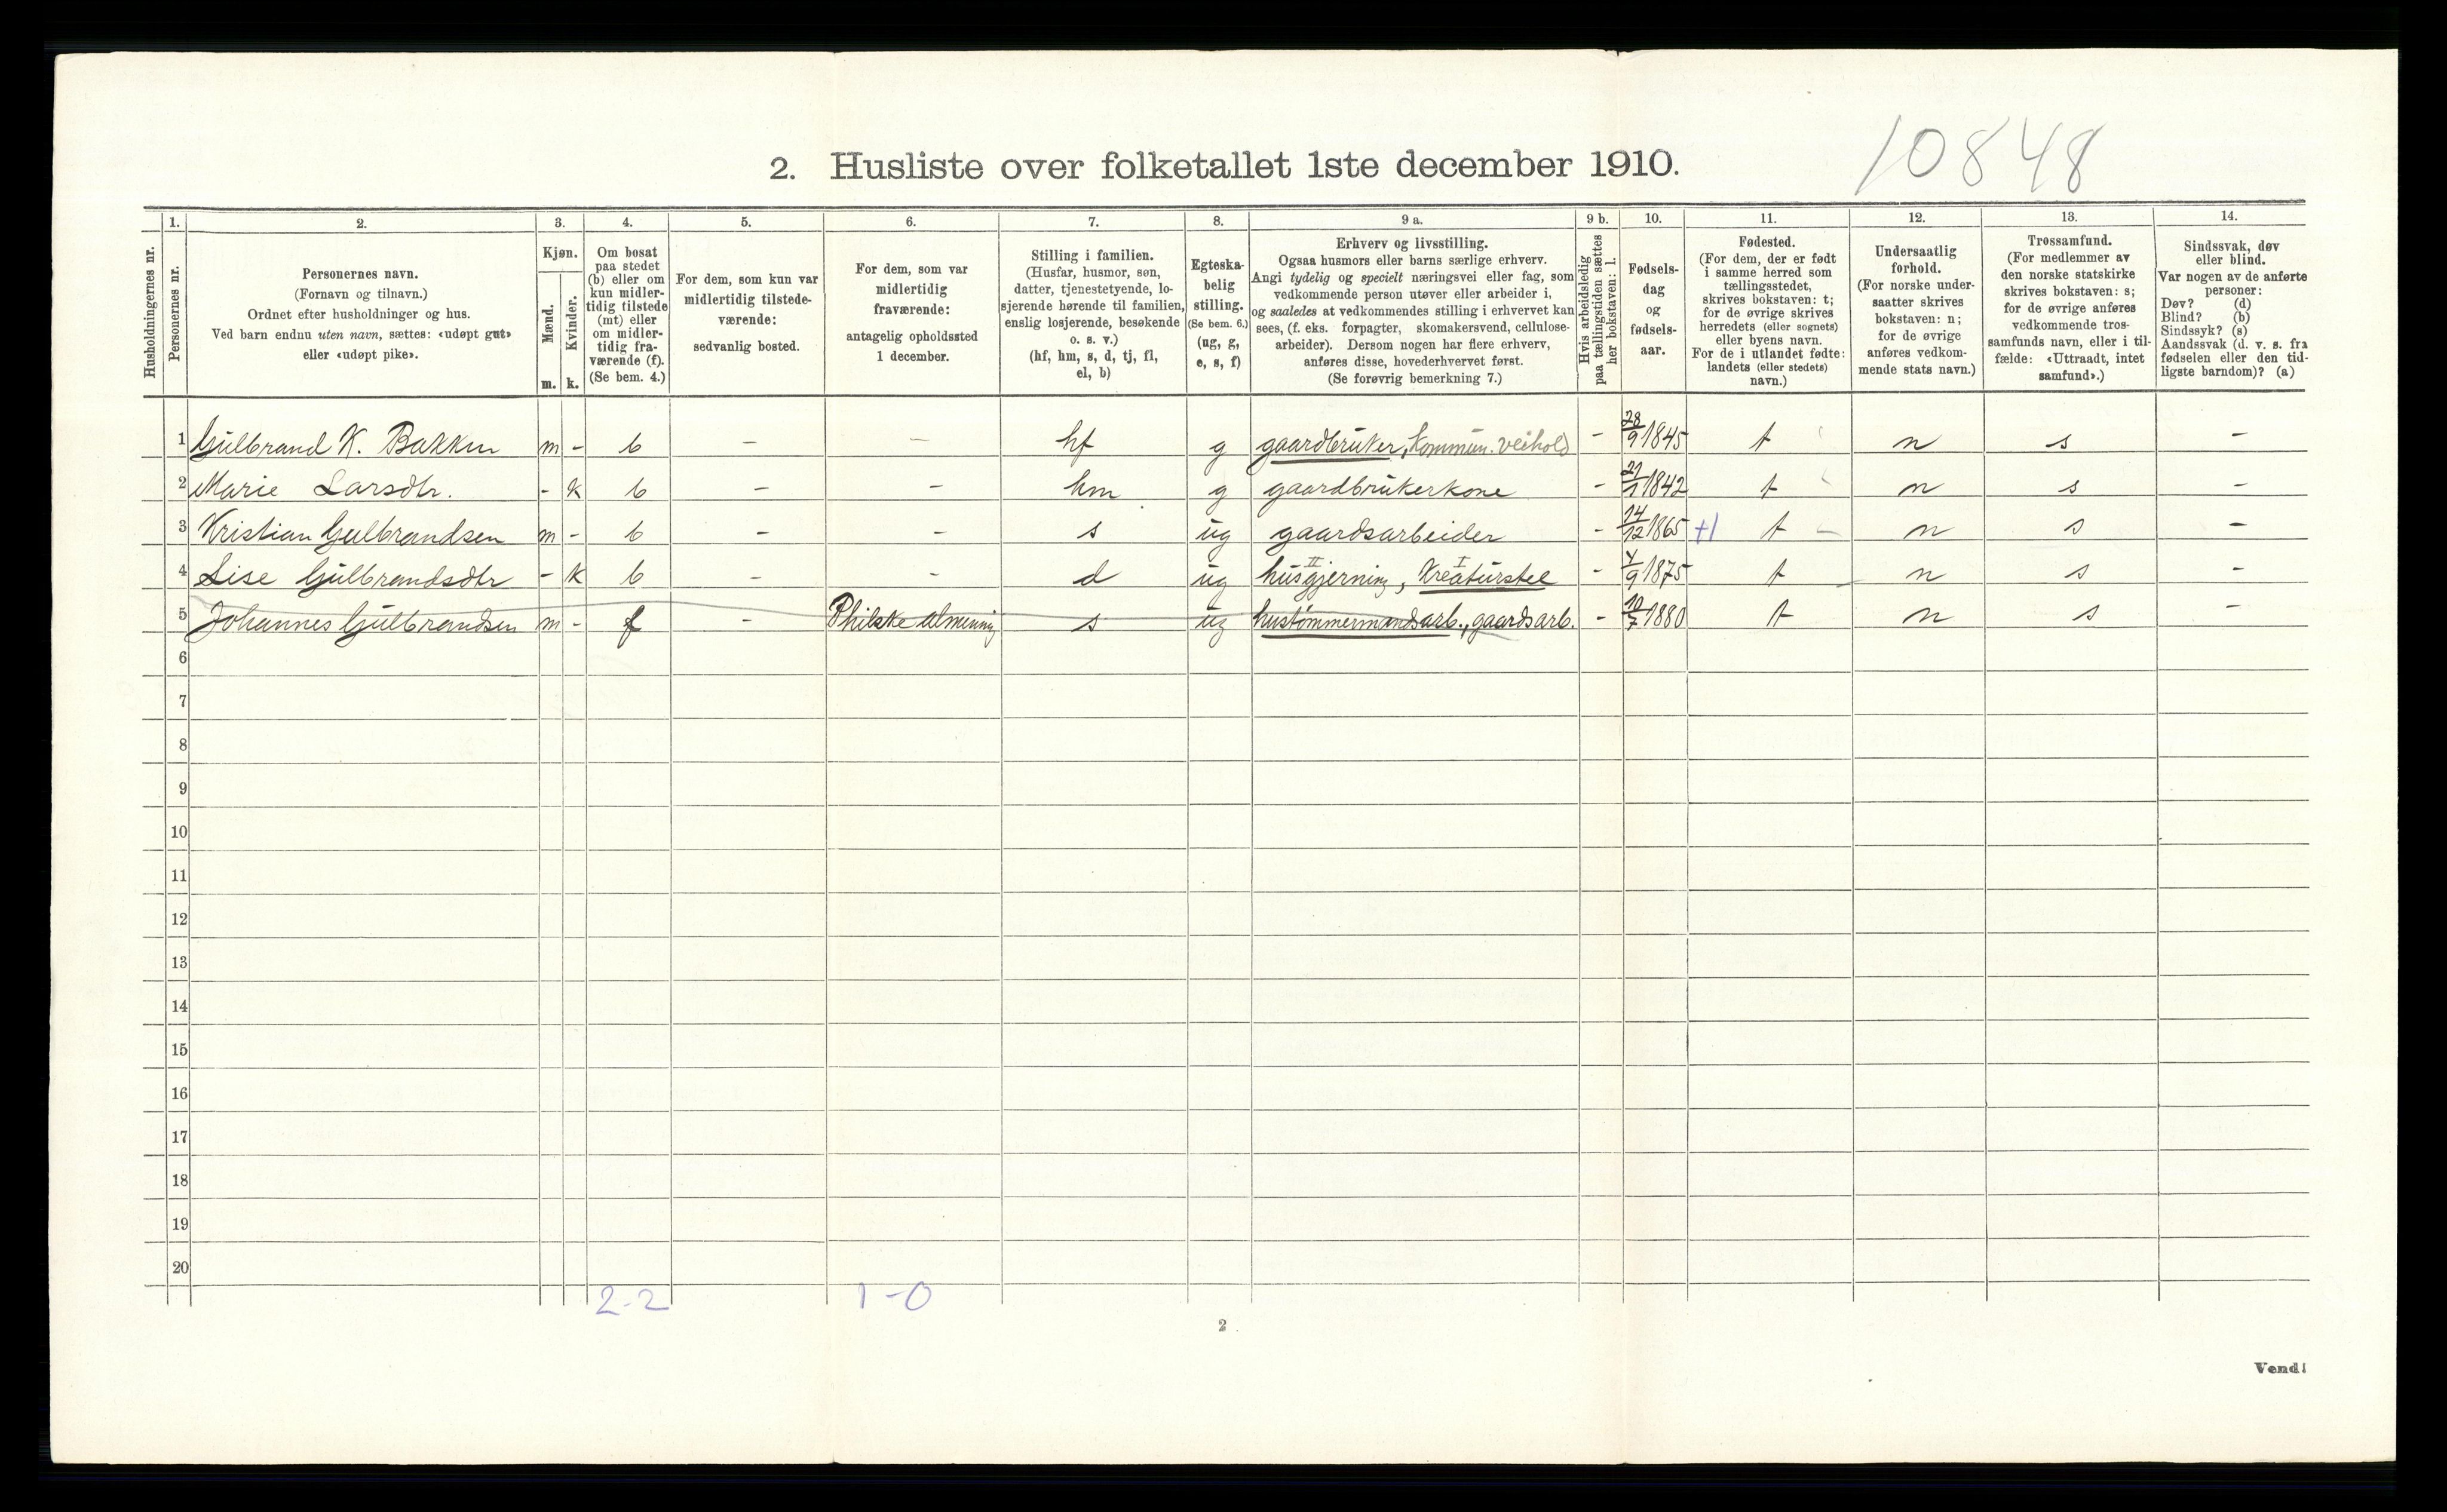 10848
2. Husliste over folketallet 1ste december 1910.
Husholdningernes nr.
1. Personernes nr.
2. Personernes navn. (Fornavn og tilnavn.) Ordnet efter husholdninger og hus. Ved barn endnu uten navn, sættes: «udøpt gut» eller «udøpt pike».
3. Kjøn. Mænd. m. Kvinder. k.
4. Om bosat paa stedet (b) eller om kun midlertidig tilstede (mt) eller om midlertidig fraværende (f). (Se bem. 4.)
5. For dem, som kun var midlertidig tilstedeværende: sedvanlig bosted.
6. For dem, som var midlertidig fraværende: antagelig opholdssted 1 december.
7. Stilling i familien. (Husfar, husmor, søn, datter, tjenestetyende, losjerende hørende til familien, enslig losjerende, besøkende o. s. v.) (hf, hm, s, d, tj, fl, el, b)
8. Egteskabelig stilling. (Se bem. 6.) (ug, g, e, s, f)
9 a. Erhverv og livsstilling. Ogsaa husmors eller barns særlige erhverv. Angi tydelig og specielt næringsvei eller fag, som vedkommende person utøver eller arbeider i, og saaledes at vedkommendes stilling i erhvervet kan sees, (f. eks. forpagter, skomakersvend, cellulosearbeider). Dersom nogen har flere erhverv, anføres disse, hovederhvervet først. (Se forøvrig bemerkning 7.)
9 b. Hvis arbeidsledig paa tællingstiden sættes her bokstaven: l.
10. Fødselsdag og fødselsaar.
11. Fødested. (For dem, der er født i samme herred som tællingsstedet, skrives bokstaven: t; for de øvrige skrives herredets (eller sognets) eller byens navn. For de i utlandet fødte: landets (eller stedets) navn.)
12. Undersaatlig forhold. (For norske undersaatter skrives bokstaven: n; for de øvrige anføres vedkommende stats navn.)
13. Trossamfund. (For medlemmer av den norske statskirke skrives bokstaven: s; for de øvrige anføres vedkommende trossamfunds navn, eller i tilfælde: «Uttraadt, intet samfund».)
14. Sindssvak, døv eller blind. Var nogen av de anførte personer: Døv? (d) Blind? (b) Sindssyk? (s) Aandssvak (d. v. s. fra fødselen eller den tidligste barndom)? (a)
1 Gulbrand K. Bakken m - b - - hf g gaardbruker, kommun. veihold - 28/9 1845 t n s -
2 Marie Larsdtr. - k b - - hm g gaardbrukerkone - 21/1 1842 t n s -
3 Kristian Gulbrandsen m - b - - s ug gaardsarbeider - 14/12 1865 +1 t - n s -
4 Lise Gulbrandsdtr - k b - - d ug II husgjerning, I Kreaturstel - 4/9 1875 t n s -
5 Johannes Gulbrandsen m - f - almenning s ug hustømmermandsarb., gaardsarb. - 10/7 1880 t n s -
6
7
8
9
10
11
12
13
14
15
16
17
18
19
20
2-2 1-0
2
Vend!